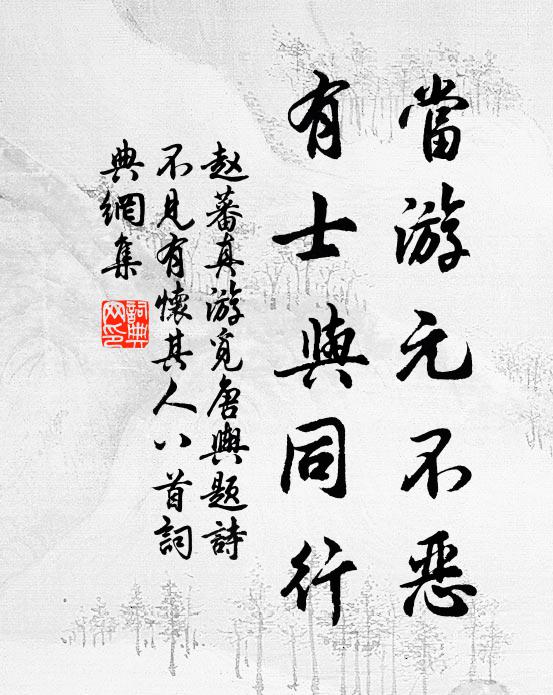 當游元不惡
有士與同行
赵蕃真游觅唐與题詩
不見有懷其人八首詞
典網集
詞典
网印